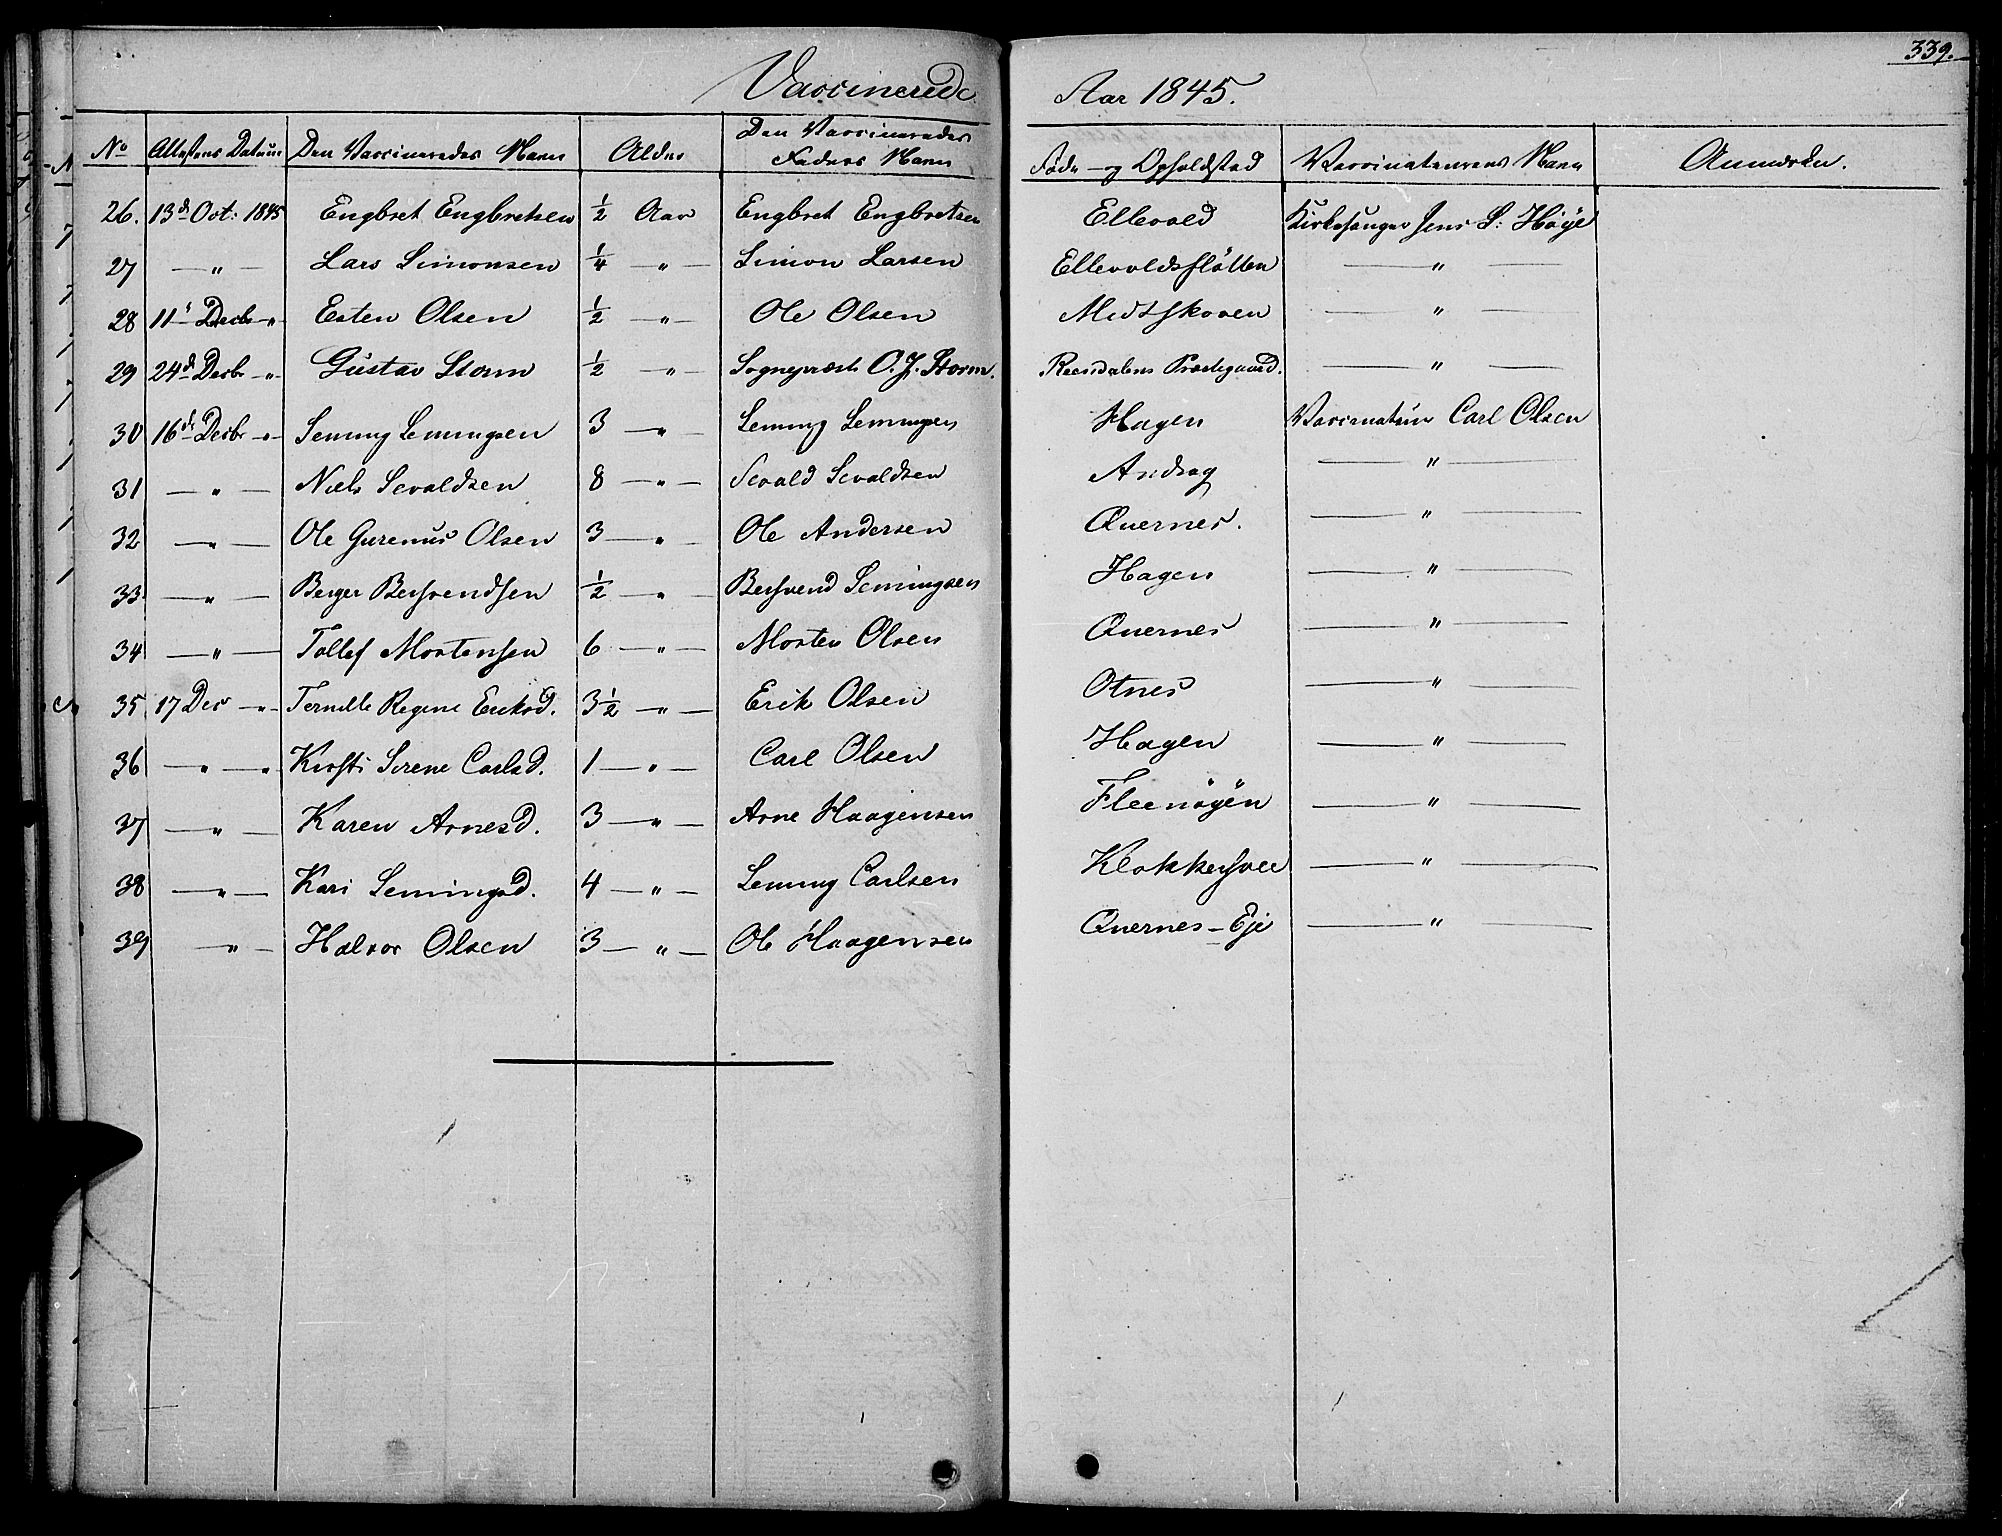 339.
Vaccinerede Aar 1845.
No Attestens Datum Den Vaccineredes Navn Alder Den Vaccineredes Faders Navn Føde- og Opholdsted Vaccinateurens Navn Anmærkn.
26. 13de Oct: 1845 Engbret Engbretsen ½ Aar Engbret Engbretsen Ellevold Kirkesanger Jens S: Høye
27 — " — Lars Simonsen ¼ — " — Simon Larsen Ellevoldsfløtten — " —
28 11te Decbr — " Esten Olsen ½ — " — Ole Olsen Midtskoven — " —
29 24de Decbr — " Gustav Storm ½ — " — Sognepræst O. J. Storm. Reendalens Præstegaard. — " —
30 16de Decbr — " — Seming Semingsen 3 — " — Seming Semingsen Hagen Vaccinateur Carl Olsen
31 — " — Niels Sevaldsen 8 — " — Sevald Sevaldsen Andraq — " —
32 — " — Ole Gurenius Olsen 3 — " — Ole Andersen Quernes. — " —
33 — " — Berger Bersvendsen ½ — " — Bersvend Semingsen Hagen — " —
34 — " — Tollef Mortensen 6 — " — Morten Olsen Quernes — " —
35 17 Dec — " — Pernelle Regine Eriksd. 3½ — " — Erik Olsen Otnes — " —
36 — " — " Kirsti Sirene Carlsd. 1 — " — Carl Olsen Hagen — " —
37 — " — Karen Arnesd. 3 — " — Arne Haagensen Fleenøyen — " —
38 — " — Kari Semingsd. 4 — " — Seming Carlsen Klokkersvee — " —
39 " — Halvor Olsen 3 — " — Ole Haagensen Quernes-Eje — " —